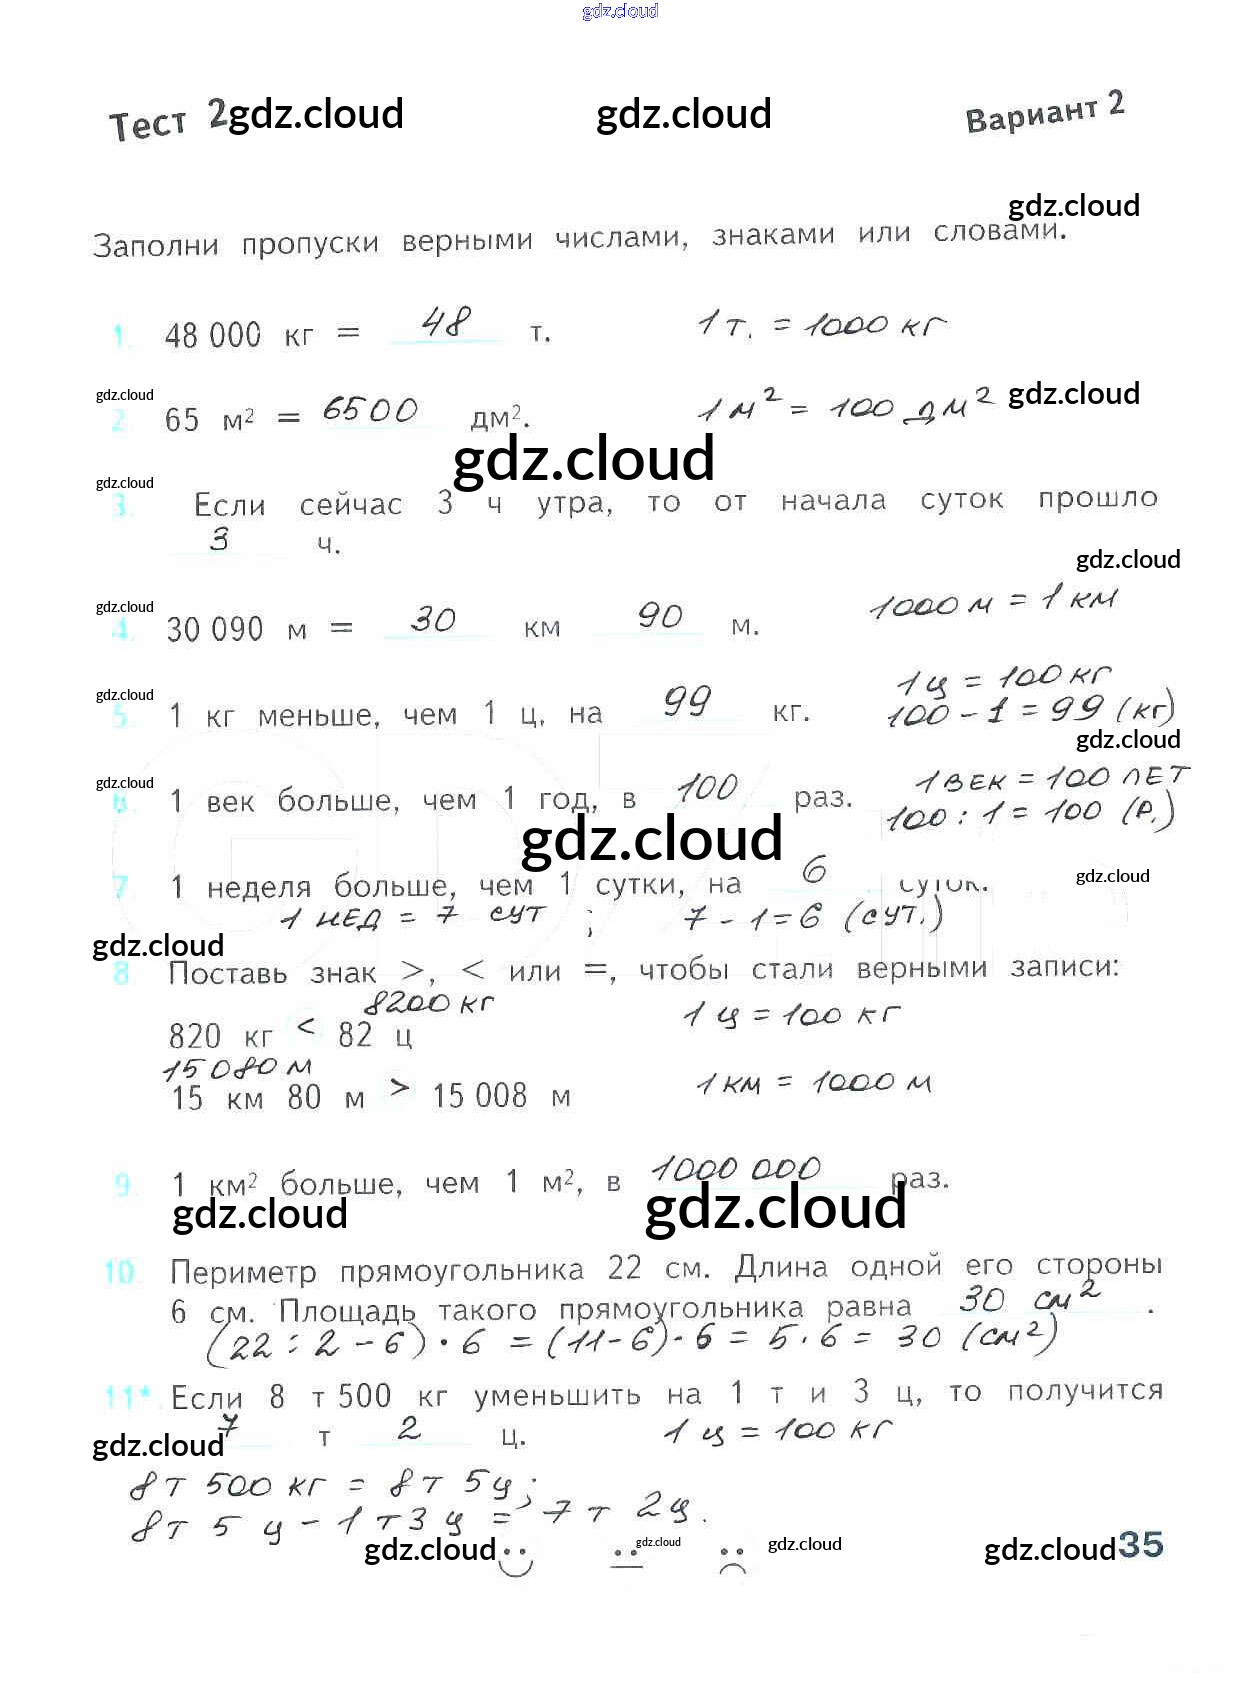 gdz.cloud
Тест 2gdz.cloud gdz.cloud Вариант 2
gdz.cloud
Заполни пропуски верными числами, знаками или словами.
1. 48 000 кг = 48 т. 1 т. = 1000 кг
gdz.cloud gdz.cloud
2 65 м² = 6500 дм². 1 м² = 100 дм²
gdz.cloud
gdz.cloud
3. Если сейчас 3 ч утра, то от начала суток прошло
3 ч.
gdz.cloud
gdz.cloud
4. 30 090 м = 30 км 90 м. 1000 м = 1 км
gdz.cloud 1 ц = 100 кг
5 1 кг меньше, чем 1 ц, на 99 кг. 100 - 1 = 99 (кг)
gdz.cloud
gdz.cloud 1 век = 100 лет
6. 1 век больше, чем 1 год, в 100 раз. 100 : 1 = 100 (р.)
gdz.cloud
7 1 неделя больше, чем 1 сутки, на 6 суток. gdz.cloud
1 нед = 7 сут ; 7 - 1 = 6 (сут.)
gdz.cloud
8 Поставь знак >, < или =, чтобы стали верными записи:
8200 кг
820 кг < 82 ц 1 ц = 100 кг
15080 м
15 км 80 м > 15 008 м 1 км = 1000 м
9. 1 км² больше, чем 1 м², в 1000 000 раз.
gdz.cloud gdz.cloud
10 Периметр прямоугольника 22 см. Длина одной его стороны
6 см. Площадь такого прямоугольника равна 30 см² .
(22 : 2 - 6) · 6 = (11 - 6) · 6 = 5 · 6 = 30 (см²)
11*. Если 8 т 500 кг уменьшить на 1 т и 3 ц, то получится
gdz.cloud 7 т 2 ц. 1 ц = 100 кг
8 т 500 кг = 8 т 5 ц ;
8 т 5 ц - 1 т 3 ц = 7 т 2 ц.
gdz.cloud gdz.cloud gdz.cloud gdz.cloud 35